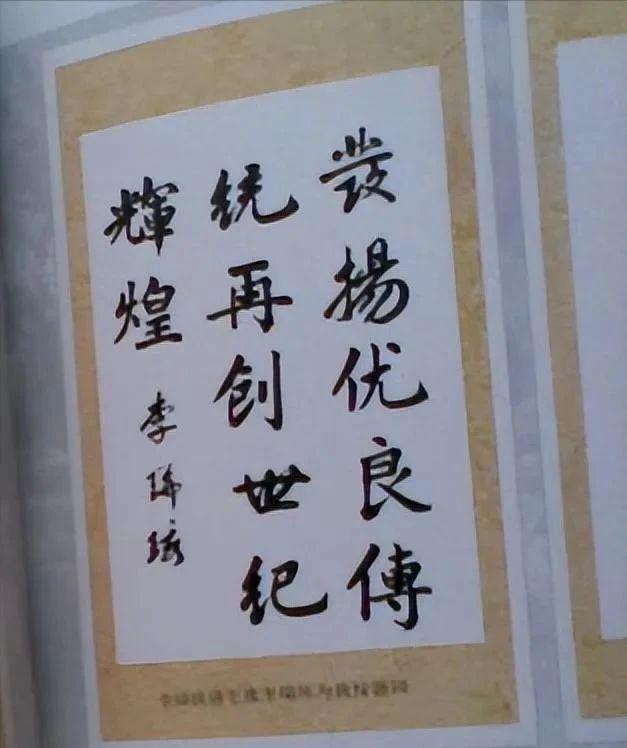 發揚优良傳
统再创世纪
輝煌 李瑞环